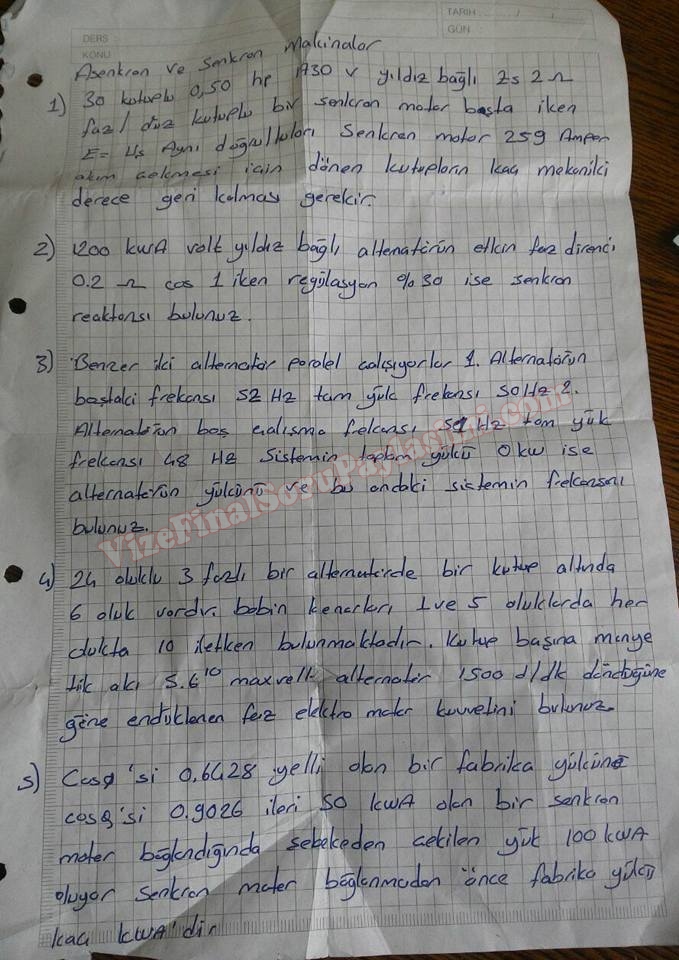 DERS :
KONU
TARİH : / /
GÜN :
Asenkron ve Senkron Makinalar
1) 30 kutuplu 0,50 hp 1730 V yıldız bağlı Zs 2 Ω
faz / düz kutuplu bir senkron motor boşta iken
E= Us Aynı doğrultuları Senkron motor 259 Amper
akım çekmesi için dönen kutupların kaç mekaniki
derece geri kalması gerekir.
2) 1200 kWA volt yıldız bağlı alternatörün etkin faz direnci
0.2 Ω cos 1 iken regülasyon %30 ise senkron
reaktansı bulunuz.
3) Benzer iki alternatör paralel çalışıyorlar 1. Alternatörün
boştaki frekansı 52 Hz tam yük frekansı 50Hz 2.
Alternatörün boş çalışma frekansı 51 Hz tam yük
frekansı 48 Hz Sistemin toplam yükü 0 kw ise
alternatörün yükünü ve bu andaki sistemin frekansını
bulunuz.
4) 24 oluklu 3 fazlı bir alternatörde bir kutup altında
6 oluk vardır. bobin kenarları 1 ve 5 oluklarda her
olukta 10 iletken bulunmaktadır. Kutup başına manye
tik akı 5.6^10 maxvell alternatör 1500 d/dk döndüğüne
göre endüklenen faz elektro motor kuvvetini bulunuz.
5) Cosφ 'si 0,6428 yelli olan bir fabrika yüküne
cosφ'si 0.9026 ileri 50 kWA olan bir senkron
motor bağlandığında şebekeden çekilen yük 100 kWA
oluyor senkron motor bağlanmadan önce fabrika yükü
kaç kWA'dir
VizeFinalSoruPaylasimi.com